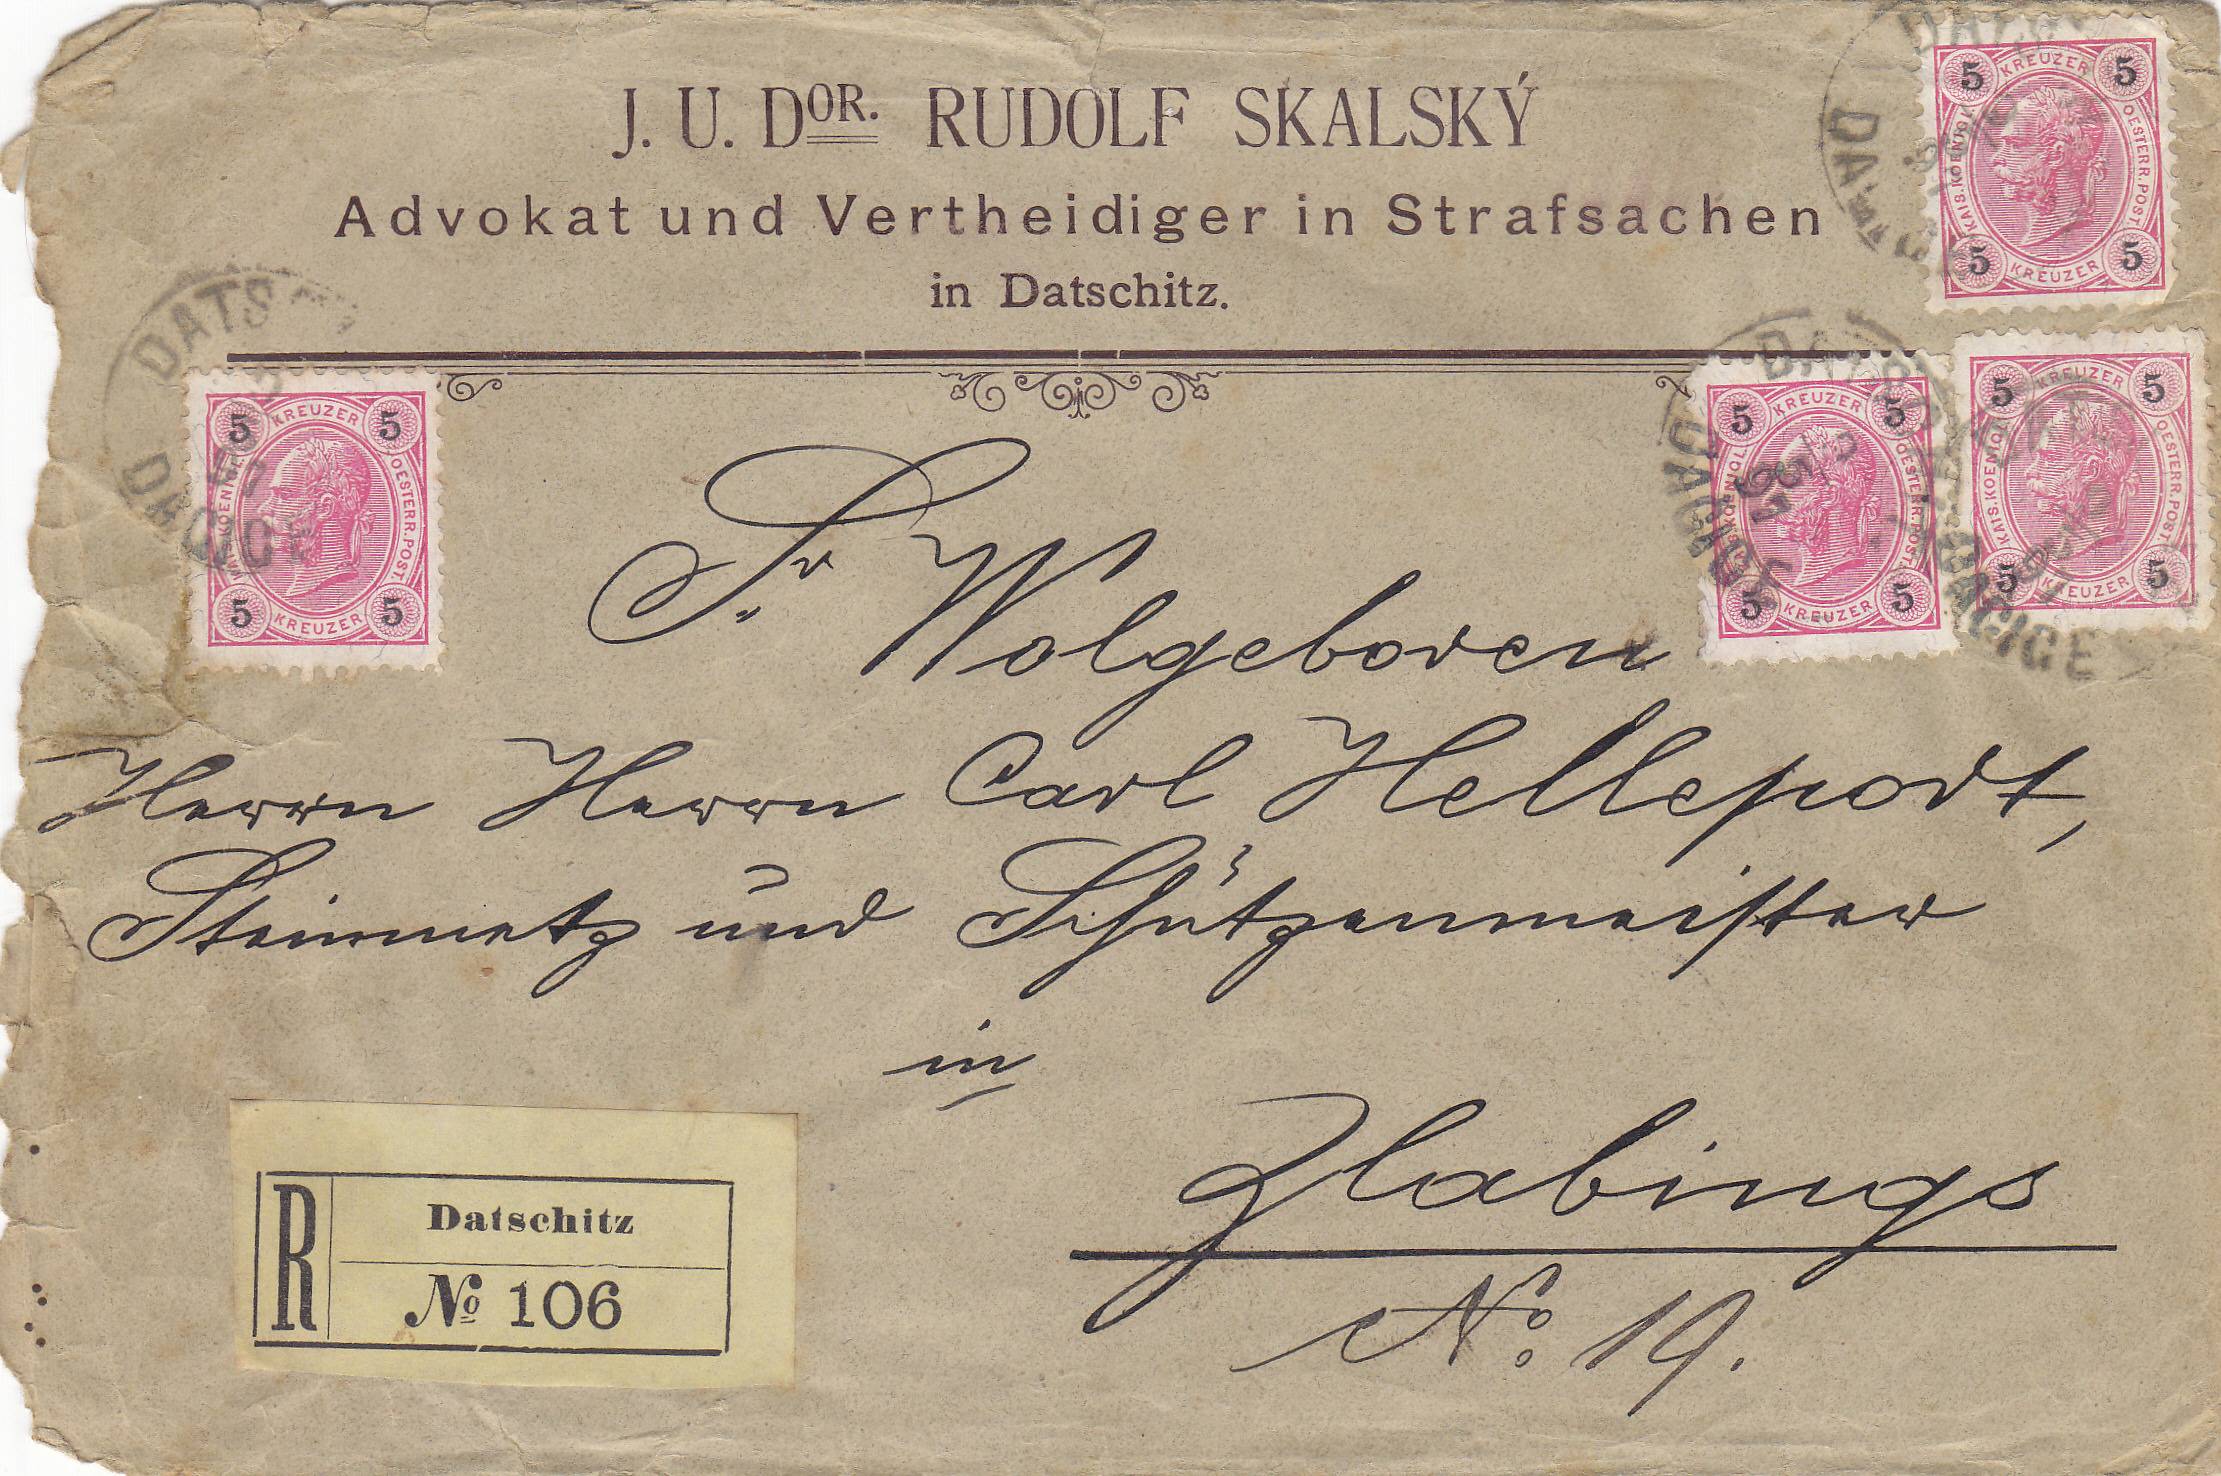 J. U. DOR. RUDOLF SKALSKÝ
Advokat und Vertheidiger in Strafsachen
in Datschitz.
KREUZER
5 5
KAIS. KOENIGL. OESTERR. POST.
5 5
KREUZER
KREUZER
5 5
KAIS. KOENIGL. OESTERR. POST.
5 5
KREUZER
KREUZER
5 5
KAIS. KOENIGL. OESTERR. POST.
5 5
KREUZER
KREUZER
5 5
KAIS. KOENIGL. OESTERR. POST.
5 5
KREUZER
DAČICE
Sr Wolgeboren
Herrn Herrn Carl
Steinmetz und Schützenmeister
in
Zlabings
No. 19.
R
Datschitz
No 106